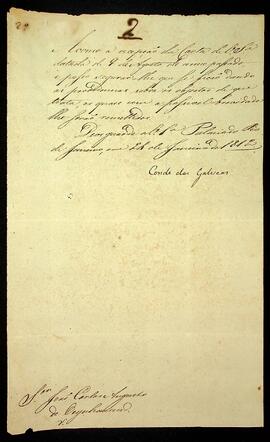 2
a recepção da Carta de V. Sª
datada de 9 de Agosto do anno passado,
e posso segurar-lhe que
as providencias sobre os objectos de que
trata, as quaes com a possivel brevidade
lhe serão remettidas.
Deos guarde a V. Sª Palacio do Rio
de Janeiro, em 26 de Janeiro de 1812
Conde das Galveas
Snr José Carlos Augusto
de Oeynhausen